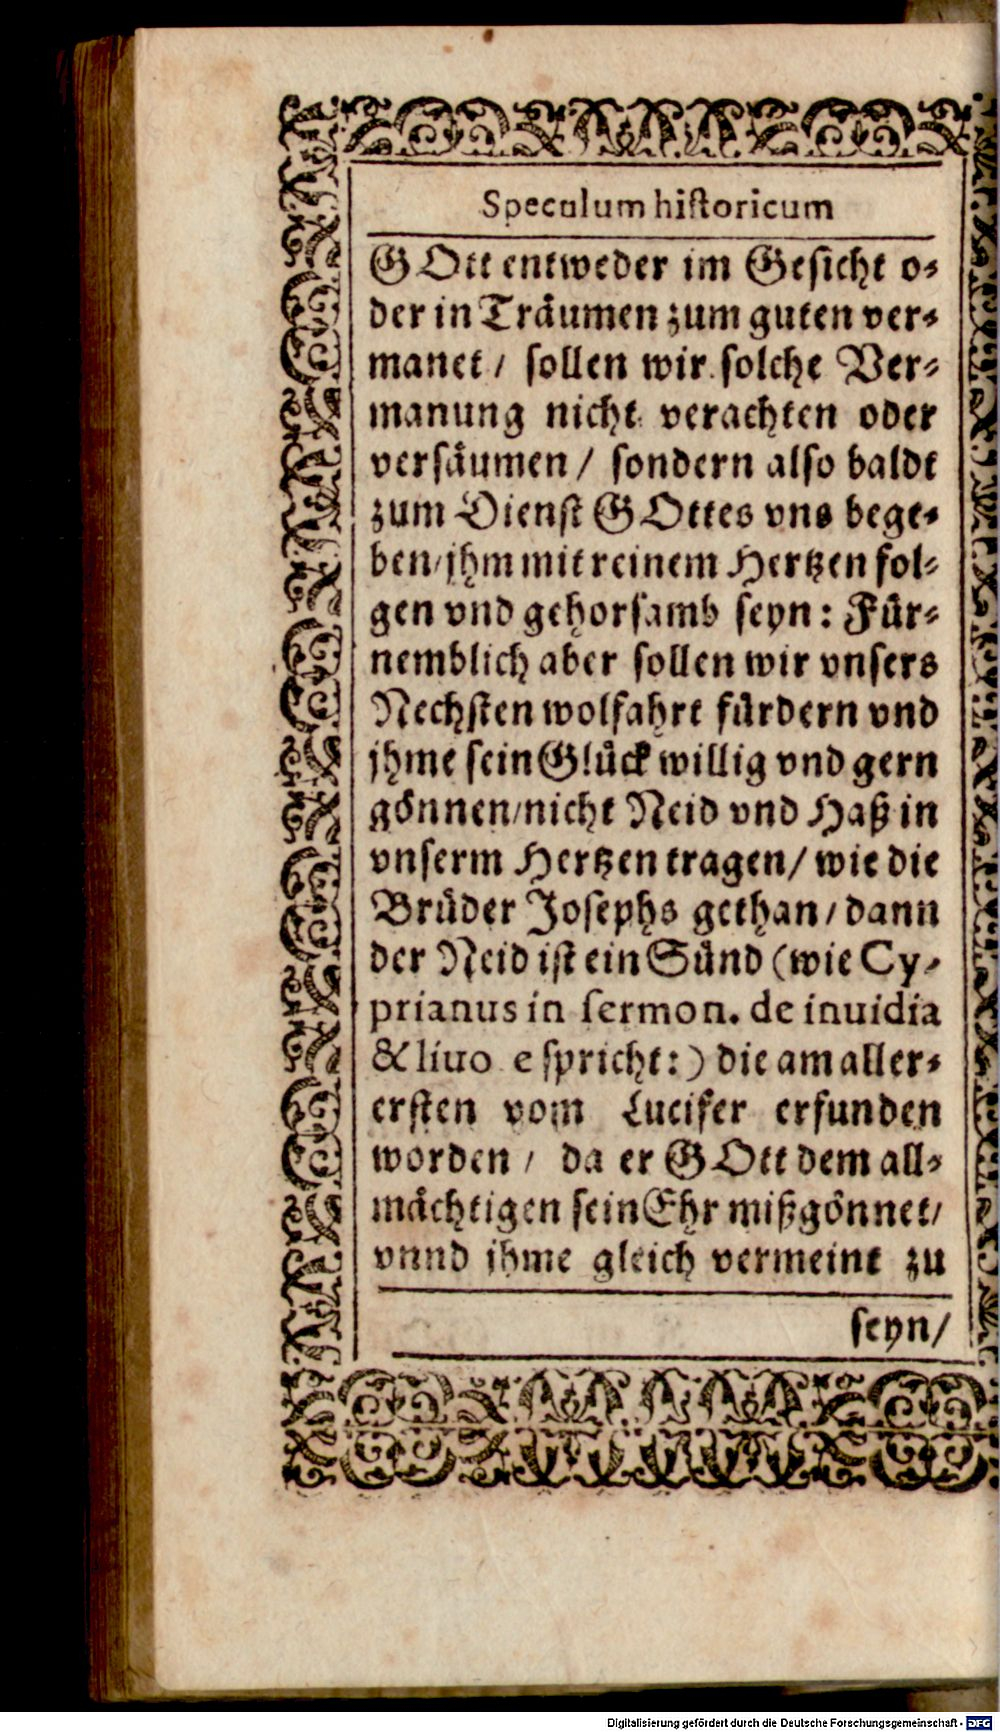 Speculum hiſtoricum
GOtt entweder im Geſicht o⸗
der in Traͤumen zum guten ver⸗
manet / ſollen wir ſolche Ver⸗
manung nicht verachten oder
verſaͤumen / ſondern alſo baldt
zum Dienſt GOttes vns bege⸗
ben/jhm mit reinem Hertzen fol⸗
gen vnd gehorſamb ſeyn: Fuͤr⸗
nemblich aber ſollen wir vnſers
Nechſten wolfahrt fuͤrdern vnd
jhme ſein Gluͤck willig vnd gern
goͤnnen/nicht Neid vnd Haß in
vnſerm Hertzen tragen/ wie die
Bruͤder Joſephs gethan/ dann
der Neid iſt ein Suͤnd (wie Cy⸗
prianus in ſermon. de inuidia
& liuo e ſpricht:) die am aller⸗
erſten vom Lucifer erfunden
worden / da er GOtt dem all⸗
maͤchtigen ſein Ehr mißgoͤnnet/
vnnd jhme gleich vermeint zu
ſeyn/
Digitalisierung gefördert durch die Deutsche Forschungsgemeinschaft - DFG